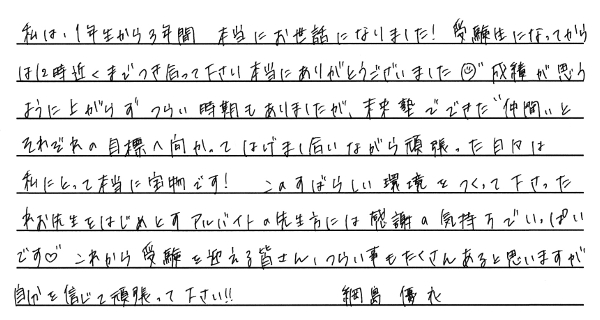 私は、1年生から3年間 本当にお世話になりました! 受験生になってから
は12時近くまでつき合って下さい本当にありがとうございました☺ 成績が思う
ように上がらず つらい時期もありましたが、未来塾でできた"仲間"と
それぞれの目標へ向かって はげまし合いながら頑張った日々は
私にとって本当に宝物です! このすばらしい環境をつくって下さった
先生をはじめとするアルバイトの先生方には感謝の気持ちでいっぱい
です♡ これから受験を迎える皆さん、つらい事もたくさんあると思いますが
自分を信じて頑張って下さい!! 綱島 優